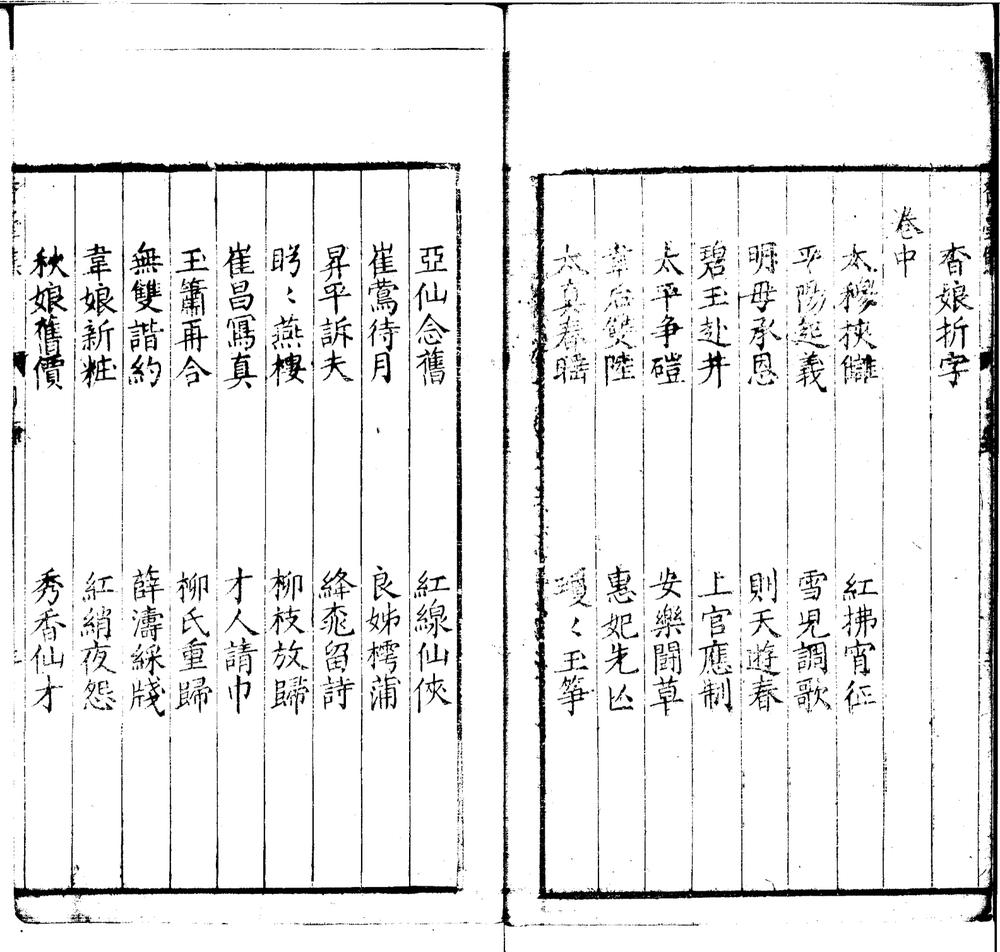 杳娘折字
卷中
太穆挾讎　紅拂宵征
平陽起義　雪児調歌
明母承恩　則天遊春
碧玉赴井　上官應制
太平争磑　安樂鬪草
韋后雙陸　惠妃先亾
太真春睡　瓊〻玉筝
亞仙念舊　紅線仙俠
崔鶯待月　良姊樗蒲
昇平訴夫　絳桃留詩
盻〻燕樓　柳枝放歸
崔昌寫真　才人請巾
玉簫再合　柳氏重歸
無雙諧約　薛濤綵牋
韋娘新粧　紅綃夜怨
秋娘舊價　秀香仙才